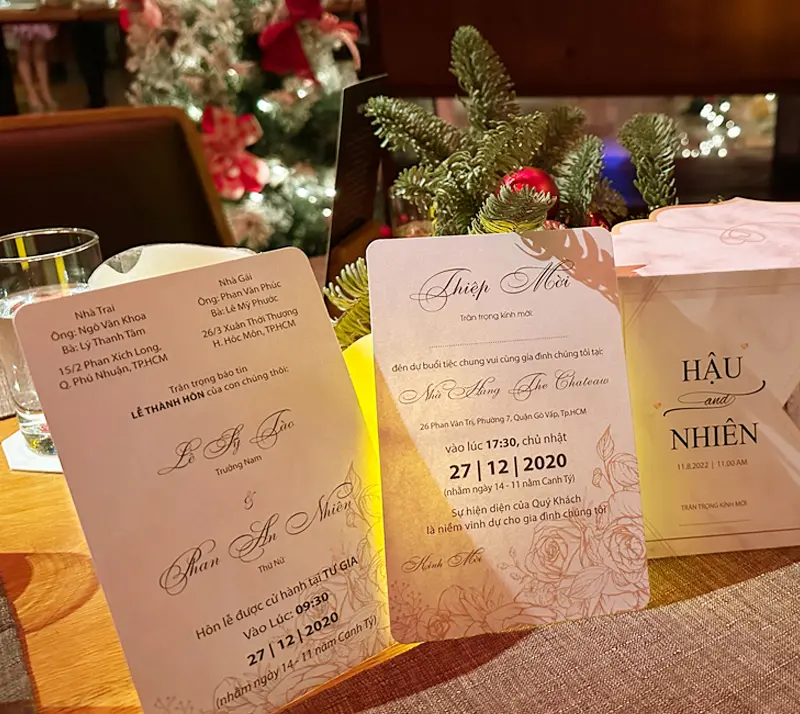 Nhà Trai
Ông: Ngô Văn Khoa
Bà: Lý Thanh Tâm
15/2 Phan Xích Long,
Q. Phú Nhuận, TP.HCM
Nhà Gái
Ông: Phan Văn Phúc
Bà: Lê Mỹ Phước
26/3 Xuân Thới Thượng
H. Hóc Môn, TP.HCM
Trân trọng báo tin
LỄ THÀNH HÔN của con chúng tôi:
Lê Sỹ Tào
Trưởng Nam
&
Phan An Nhiên
Thứ Nữ
Hôn lễ được cử hành tại TƯ GIA
Vào Lúc: 09:30
27 | 12 | 2020
(nhằm ngày 14 - 11 năm Canh Tý)
Thiệp Mời
Trân trọng kính mời:
đến dự buổi tiệc chung vui cùng gia đình chúng tôi tại:
Nhà Hàng The Chateau
26 Phan Văn Trị, Phường 7, Quận Gò Vấp, Tp.HCM
vào lúc 17:30, chủ nhật
27 | 12 | 2020
(nhằm ngày 14 - 11 năm Canh Tý)
Sự hiện diện của Quý Khách
là niềm vinh dự cho gia đình chúng tôi
Kính Mời
HẬU
and
NHIÊN
11.8.2022 | 11.00 AM
TRÂN TRỌNG KÍNH MỜI